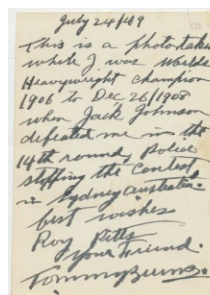 July 24/49
This is a photo taken
while I was Worlds
Heavyweight Champion
1906 to Dec 26/1908
when Jack Johnson
defeated me in the
14th round, Police
stopping the contest
in Sydney Australia.
best wishes
Roy
Your Friend.
Tommy Burns.